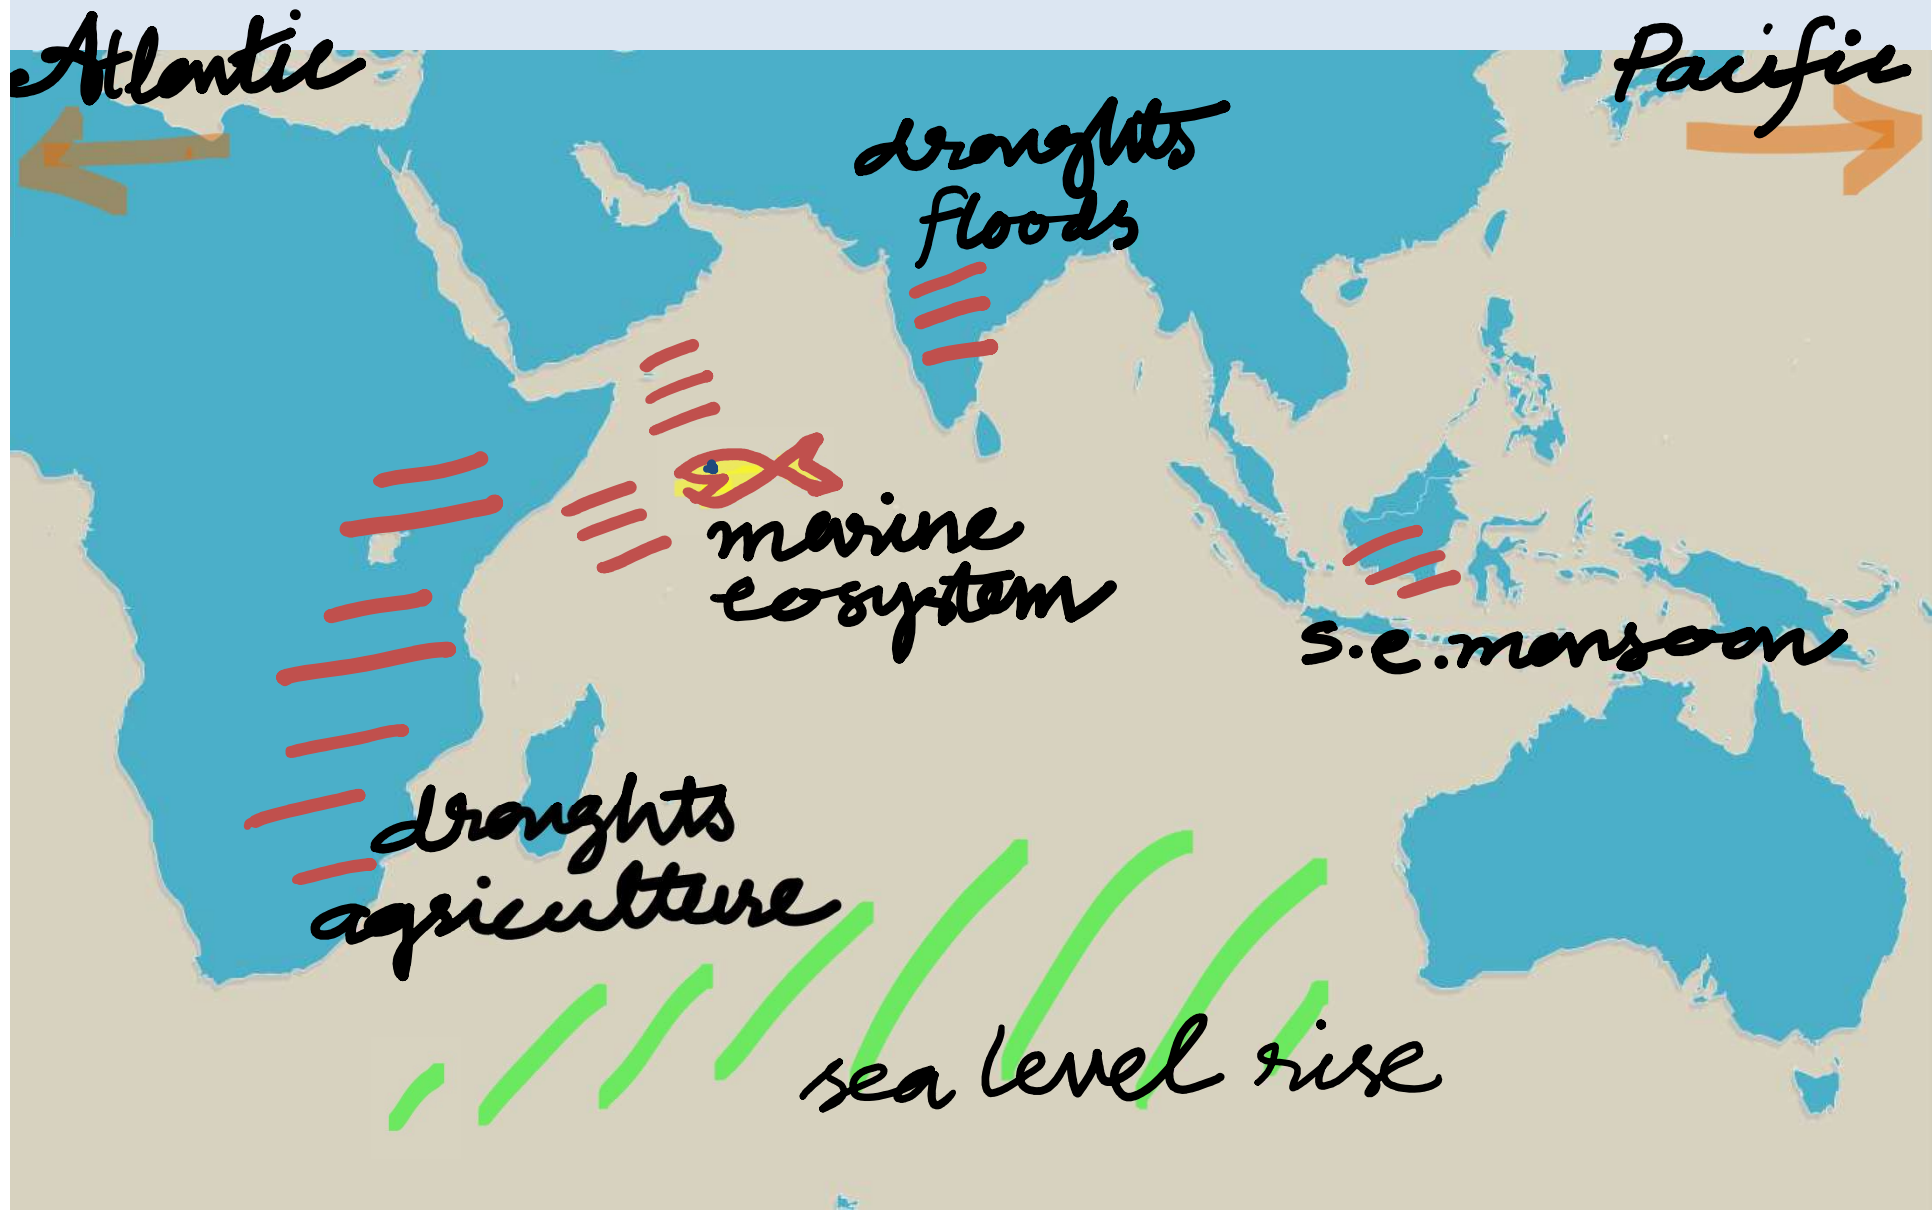 Atlantic
Pacific
droughts
floods
marine
ecosystem
s.e. monsoon
droughts
agriculture
sea level rise